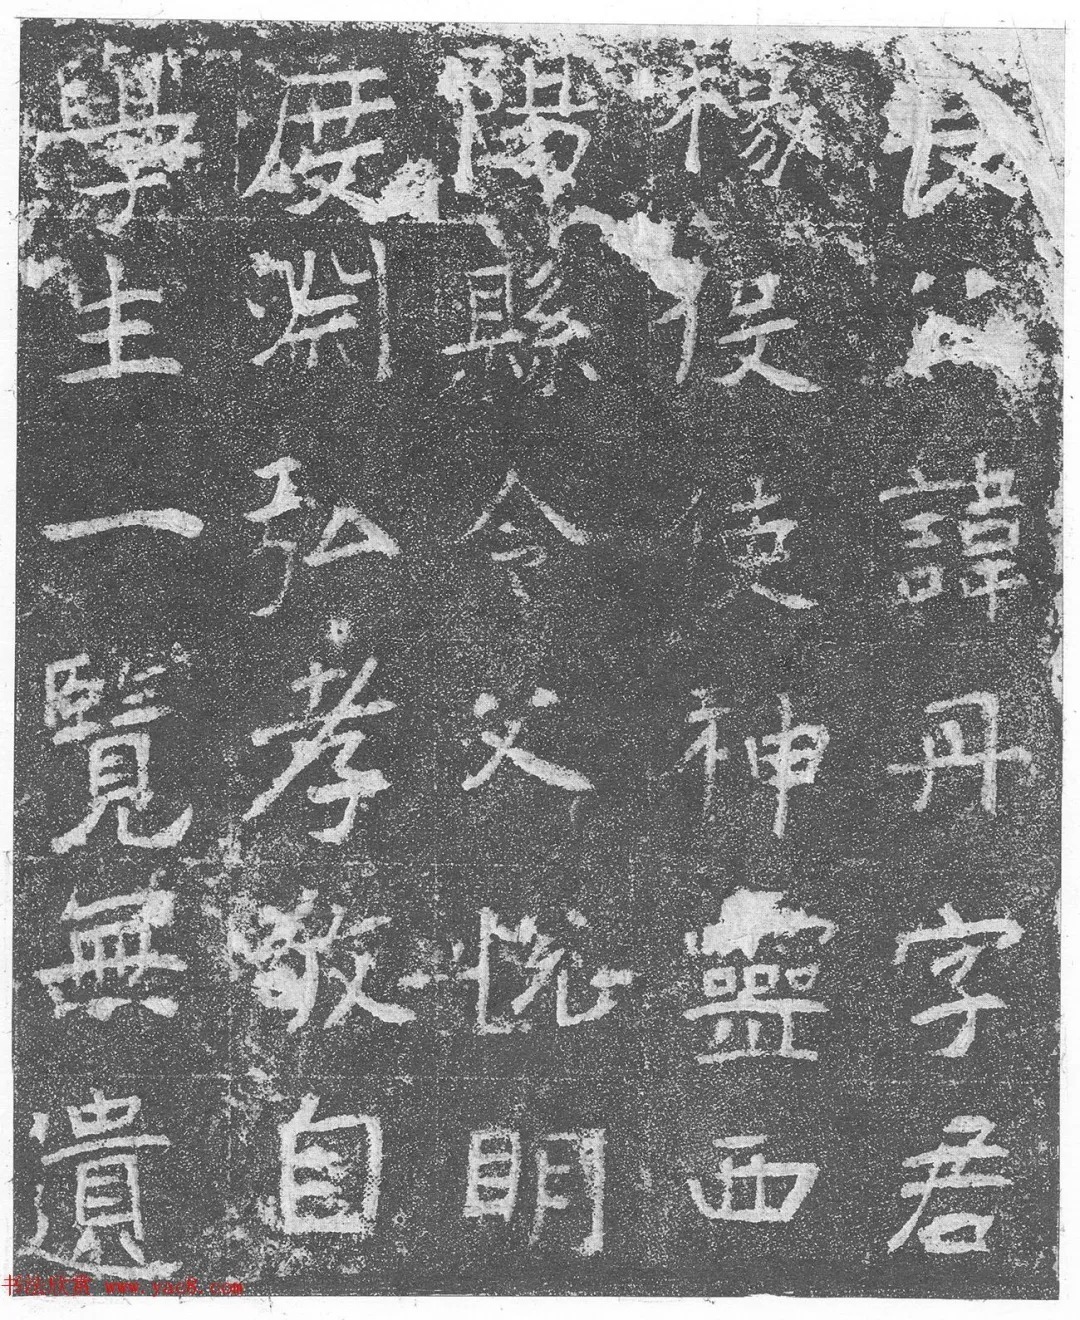 良公諱丹字君
楊役使神靈西
陽縣令父恱明
度淵弘孝敬自
學生一覽無遺
书法欣赏 www.yac8.com